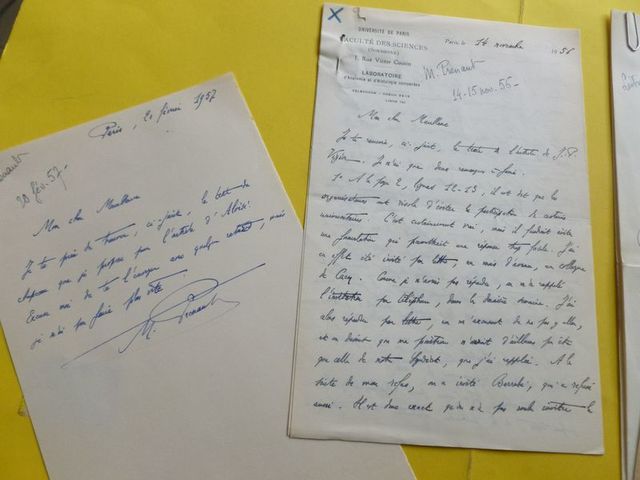 Prenant
20 fév. 57-
Paris, 20 février 1957
Mon cher Meulleuc
Je te prie de trouver, ci-jointe, le texte du
chapeau que je propose pour l'article d'Aloisi.
Excuse moi de te l'envoyer avec quelque retard, mais
je n'ai pu faire plus vite.
M. Prenant
X 2
UNIVERSITÉ DE PARIS
FACULTÉ DES SCIENCES
(SORBONNE)
1, Rue Victor Cousin
LABORATOIRE
d'Anatomie et d'Histologie comparées
Paris, le 14 novembre 1956
M. Prenant
14-15 nov. 56-
Mon cher
Je te renvoie, ci-joint, le texte de l'article de J.P.
Vigier. Je n'ai que deux remarques à faire.
1° A la page 2, lignes 12-13, il est dit que les
organisateurs ont décidé d'éviter la participation de certains
universitaires. C'est certainement vrai, mais il faudrait éviter
une formulation qui permettrait une réponse trop facile. J'ai
en effet été invité par lettre, un mois d'avance, au colloque
de Cerisy. Comme je n'avais pas répondu, on m'a rappelé
par téléphone, dans la dernière semaine. J'ai
alors répondu par lettre, en m'excusant de ne pas y aller,
et en disant que ma position n'aurait d'ailleurs pu être
que celle de notre Syndicat, que j'ai rappelée. A la
suite de mon refus, on a invité Barrabé, qui a refusé
aussi. Il est donc exact qu'on n'a pas voulu inviter le